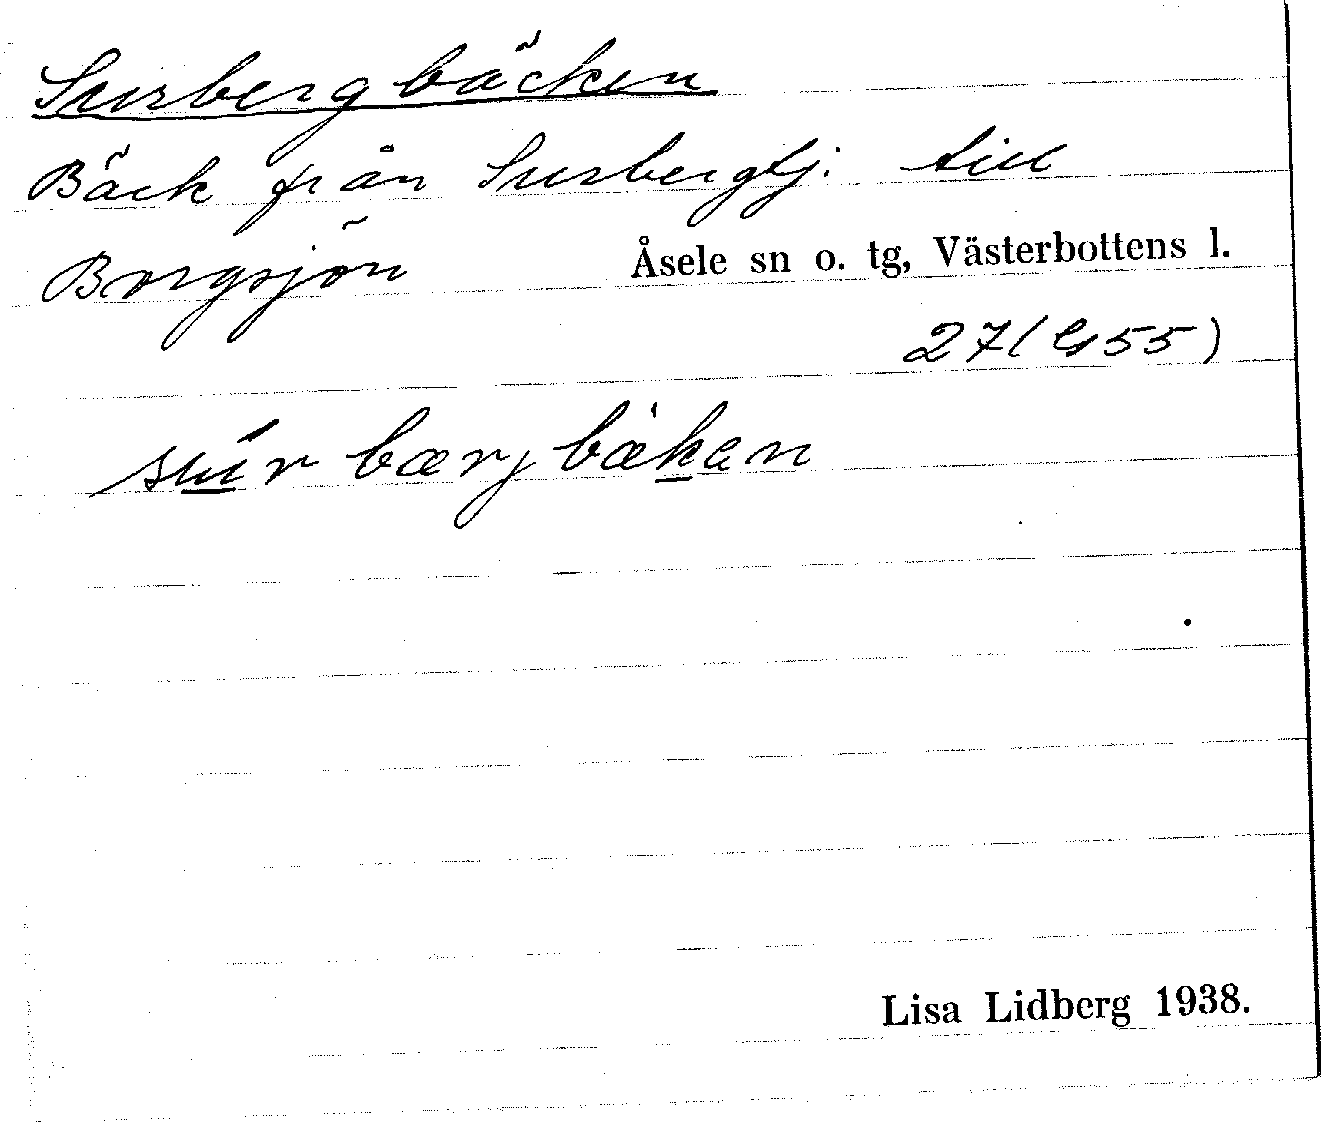 Surbergbäcken
Bäck från Surbergtj. till
Borgsjön
Åsele sn o. tg, Västerbottens l.
27 (G 55)
súrbærjbækan
Lisa Lidberg 1938.